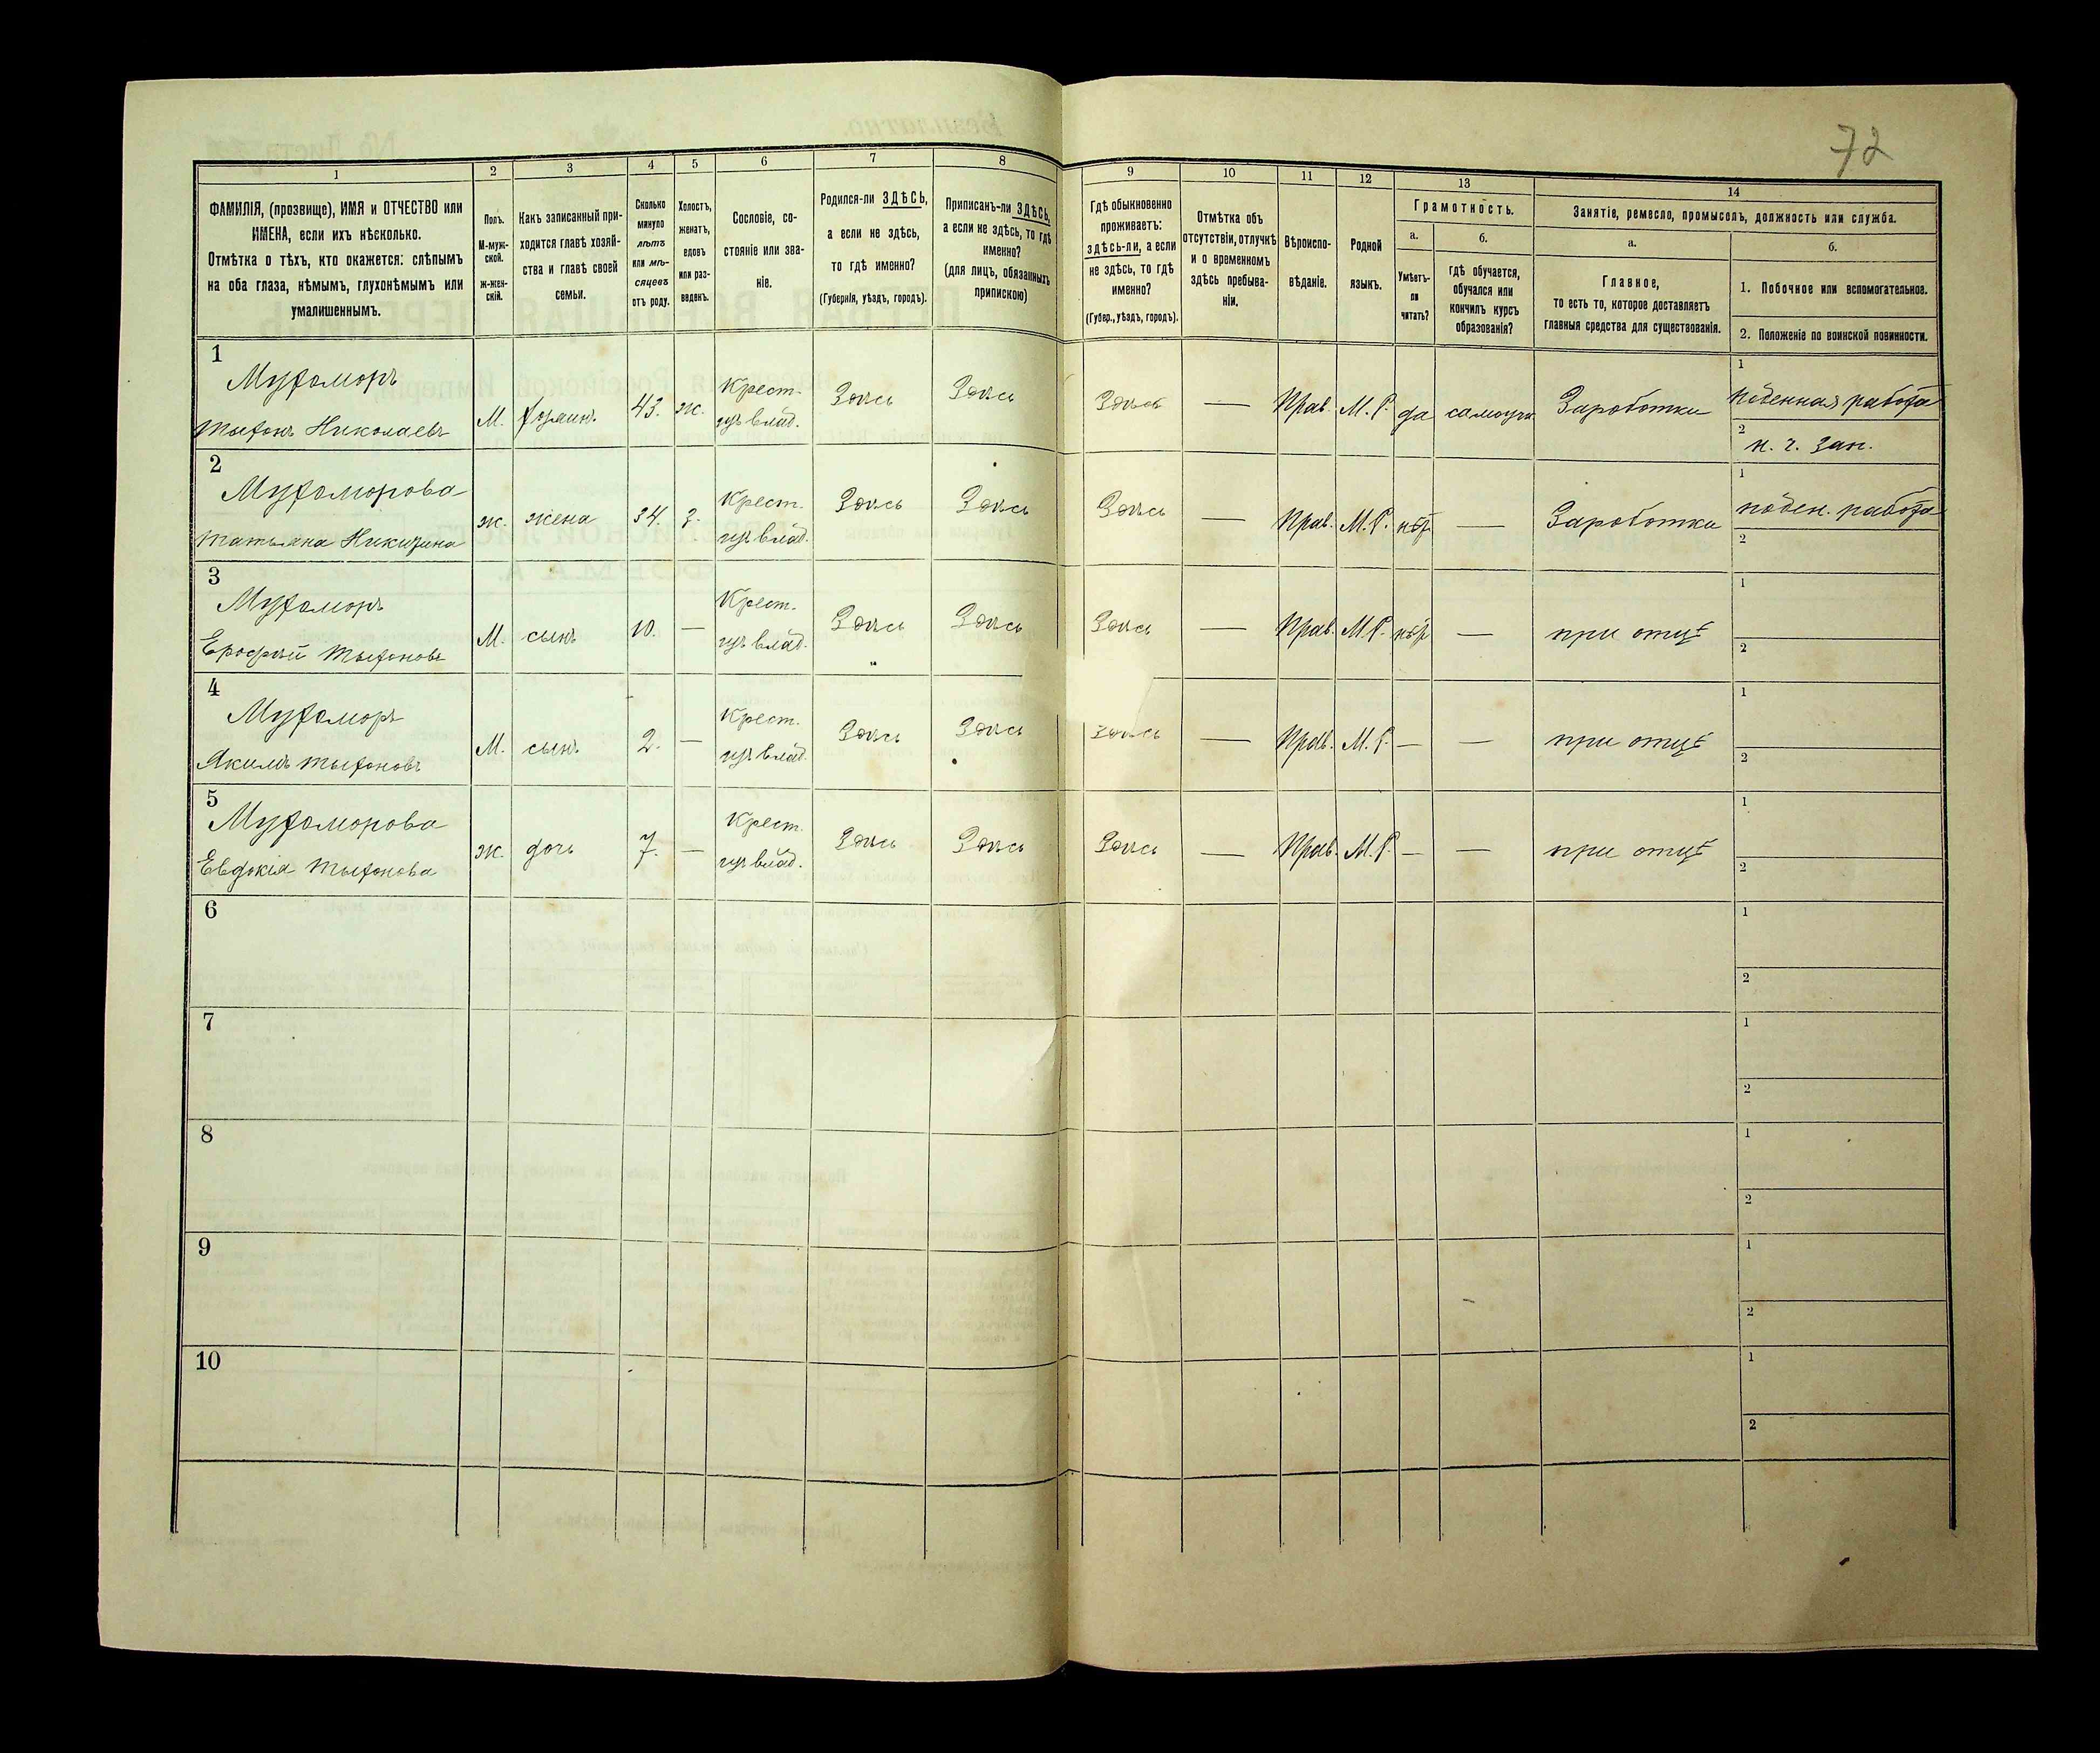 72
1
2
3
4
5
6
7
8
9
10
11
12
13
14
ФАМИЛІЯ, (прозвище), ИМЯ и ОТЧЕСТВО или
ИМЕНА, если ихъ нѣсколько.
Отмѣтка о тѣхъ, кто окажется: слѣпымъ
на оба глаза, нѣмымъ, глухонѣмымъ или
умалишеннымъ.
Полъ.
М-муж-
ской.
ж-жен-
скій.
Какъ записанный при-
ходится главѣ хозяй-
ства и главѣ своей
семьи.
Сколько
минуло
лѣтъ
или мѣ-
сяцевъ
отъ роду.
Холостъ,
женатъ,
вдовъ
или раз-
веденъ.
Сословіе, со-
стояніе или зва-
ніе.
Родился-ли ЗДѢСЬ,
а если не здѣсь,
то гдѣ именно?
(Губернія, уѣздъ, городъ).
Приписанъ-ли ЗДѢСЬ,
а если не здѣсь, то гдѣ
именно?
(для лицъ, обязанныхъ
припискою)
Гдѣ обыкновенно
проживаетъ:
здѣсь-ли, а если
не здѣсь, то гдѣ
именно?
(Губер., уѣздъ, городъ).
Отмѣтка объ
отсутствіи, отлучкѣ
и о временномъ
здѣсь пребыва-
ніи.
Вѣроиспо-
вѣданіе.
Родной
языкъ.
Грамотность.
а.
Умѣетъ-
ли
читать?
б.
гдѣ обучается,
обучался или
кончилъ курсъ
образованія?
Занятіе, ремесло, промыселъ, должность или служба.
а.
Главное,
то есть то, которое доставляетъ
главныя средства для существованія.
б.
1. Побочное или вспомогательное.
2. Положеніе по воинской повинности.
1
Мухоморъ
Тихонъ Николаевъ
М.
хозяинъ
43.
ж.
Крест.
изъ влад.
Здѣсь
Здѣсь
Здѣсь
—
Прав.
М. Р.
да
самоучк
Заработки
1
поденная работа
2
н. ч. зап.
2
Мухоморова
Татьяна Никитина
ж.
жена
34.
з.
Крест.
изъ влад.
Здѣсь
Здѣсь
Здѣсь
—
Прав.
М. Р.
нѣт
—
Заработки
1
поден. работа
2
3
Мухоморъ
Ерофѣй Тихоновъ
М.
сынъ
10.
—
Крест.
изъ влад.
Здѣсь
Здѣсь
Здѣсь
—
Прав.
М. Р.
нѣт
—
при отцѣ
1
2
4
Мухоморъ
Якимъ Тихоновъ
М.
сынъ
2.
—
Крест.
изъ влад.
Здѣсь
Здѣсь
Здѣсь
—
Прав.
М. Р.
—
—
при отцѣ
1
2
5
Мухоморова
Евдокія Тихонова
ж.
дочь
7.
—
Крест.
изъ влад.
Здѣсь
Здѣсь
Здѣсь
—
Прав.
М. Р.
—
—
при отцѣ
1
2
6
1
2
7
1
2
8
1
2
9
1
2
10
1
2